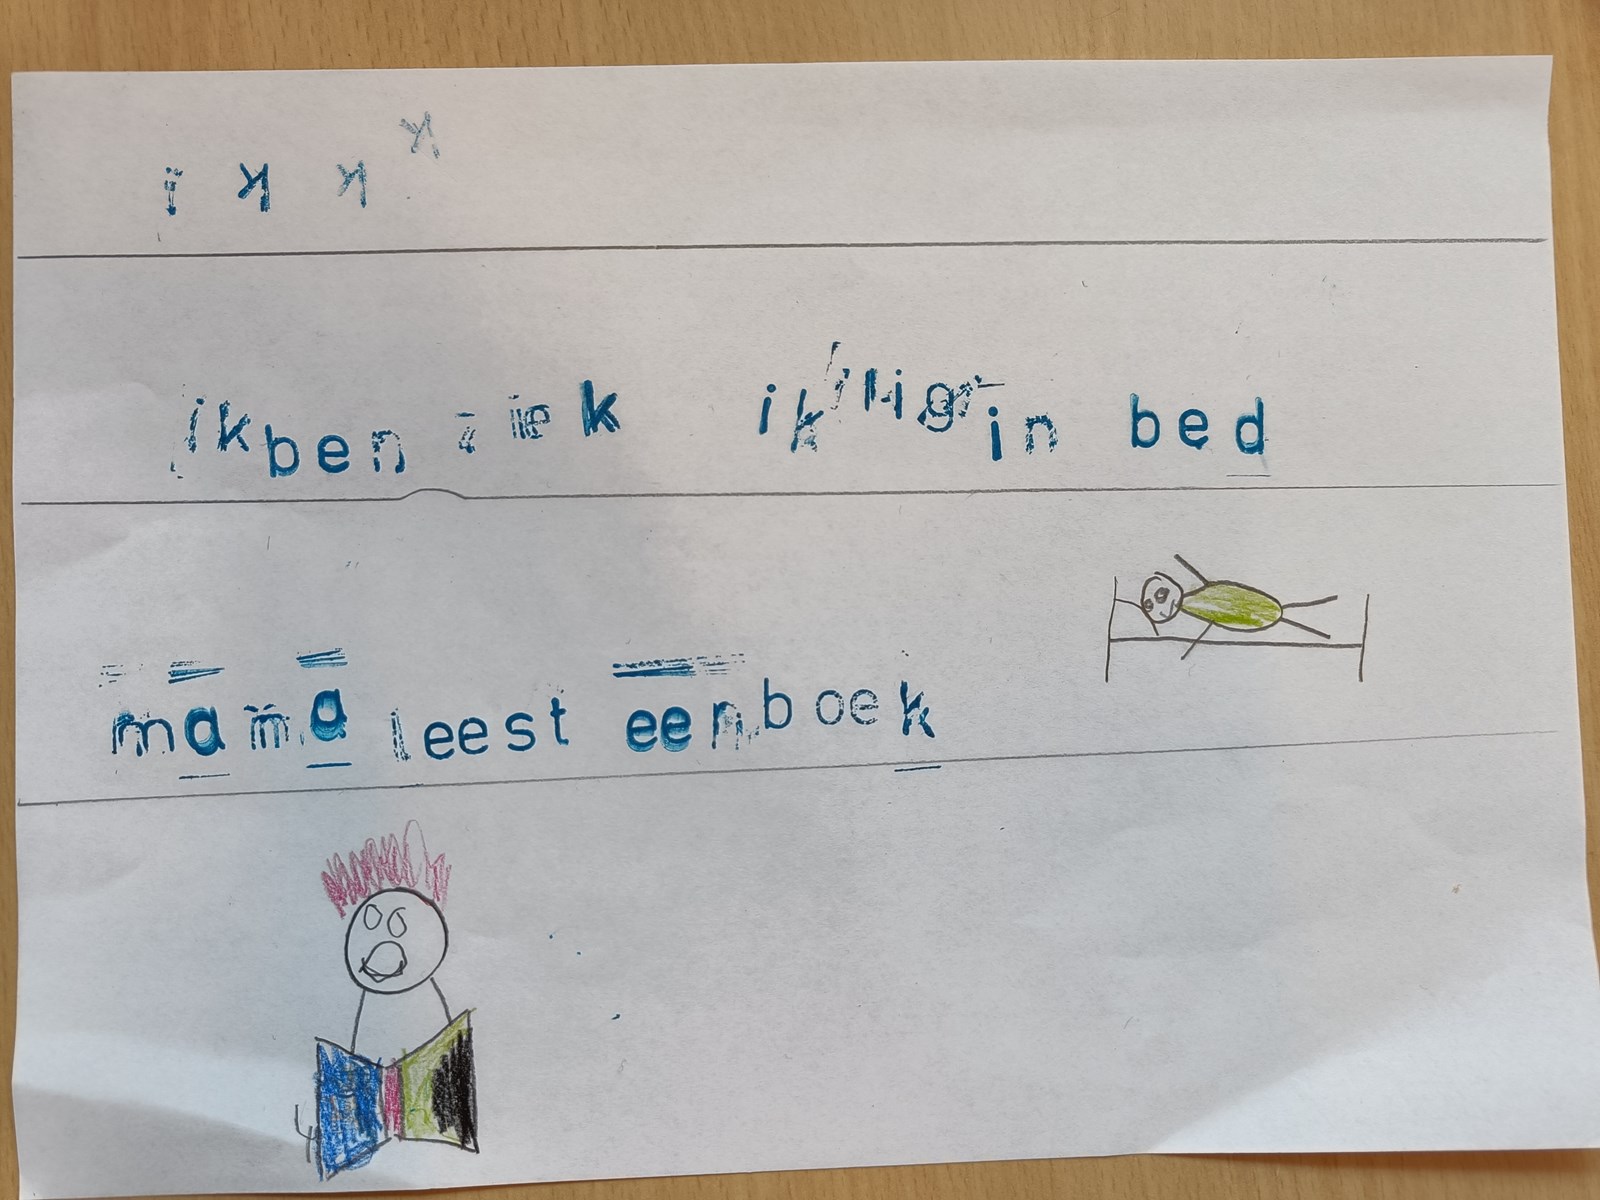 i k k k
ik ben ziek ik lig in bed
mama leest een boek